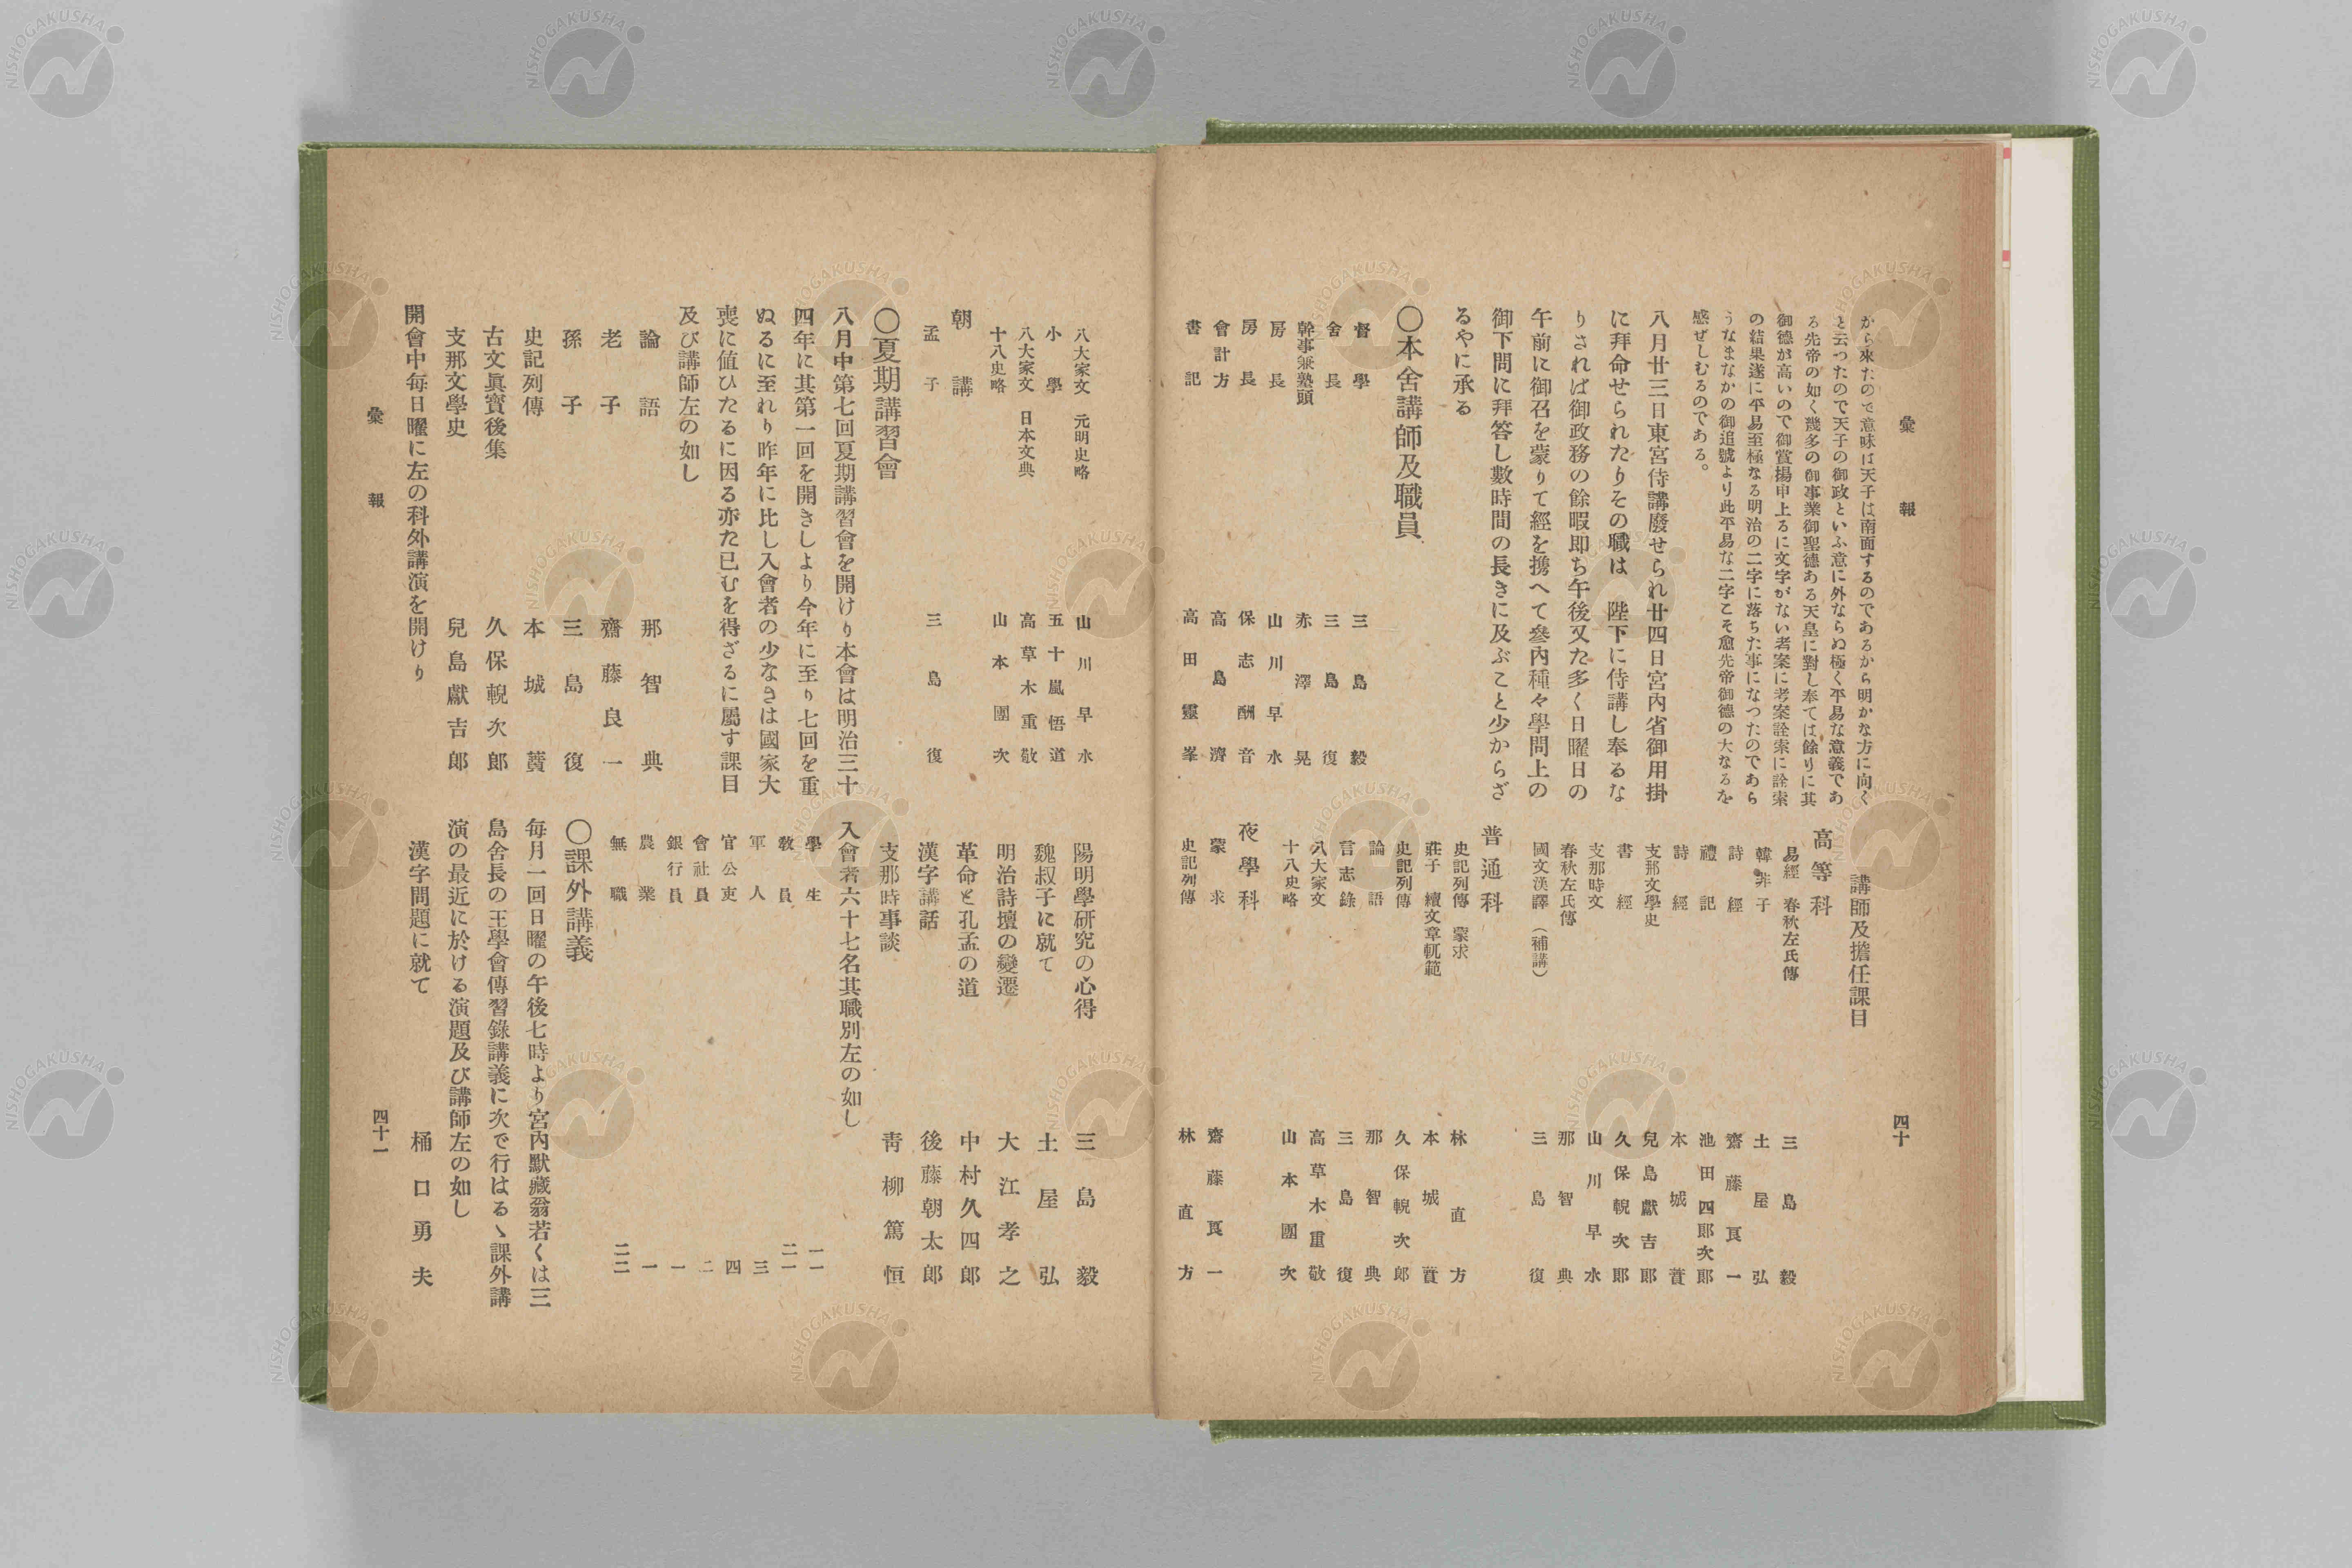 彙報
四十
から來たので意味は天子は南面するのであるから明かな方に向く
と云つたので天子の御政といふ意に外ならぬ極く平易な意義であ
る先帝の如く幾多の御事業御聖德ある天皇に對し奉ては餘りに其
御德が高いので御賞揚申上るに文字がない考案に考案詮索に詮索
の結果遂に平易至極なる明治の二字に落ちた事になつたのであら
うなまなかの御追號より此平易な二字こそ愈先帝御德の大なるを
感ぜしむるのである。
八月廿三日東宮侍講廢せられ廿四日宮內省御用掛
に拜命せられたりその職は　陛下に侍講し奉るな
りされば御政務の餘暇卽ち午後又た多く日曜日の
午前に御召を蒙りて經を携へて參內種々學問上の
御下問に拜答し數時間の長きに及ぶこと少からざ
るやに承る
〇本舍講師及職員
督學　三島毅
舍長　三島復
幹事兼塾頭　赤澤晃
房長　山川早水
房長　保志酬音
會計方　高島濟
書記　高田靈峯
講師及擔任課目
高等科
易經　春秋左氏傳　三島毅
韓非子　土屋弘
詩經　齋藤良一
禮記　池田四郞次郞
詩經　本城蕡
支那文學史　兒島獻吉郞
書經　久保輗次郞
支那時文　山川早水
春秋左氏傳　那智典
國文漢譯（補講）　三島復
普通科
史記列傳　蒙求　林直方
莊子　續文章軌範　本城蕡
史記列傳　久保輗次郞
論語　那智典
言志錄　三島復
八大家文　高草木重敬
十八史略　山本團次
夜學科
蒙求　齋藤良一
史記列傳　林直方
八大家文　元明史略　山川早水
小學　五十嵐悟道
八大家文　日本文典　高草木重敬
十八史略　山本團次
朝講
孟子　三島復
〇夏期講習會
八月中第七回夏期講習會を開けり本會は明治三十
四年に其第一回を開きしより今年に至り七回を重
ぬるに至れり昨年に比し入會者の少なきは國家大
喪に値ひたるに因る亦た已むを得ざるに屬す課目
及び講師左の如し
論語　那智典
老子　齋藤良一
孫子　三島復
史記列傳　本城蕡
古文眞寳後集　久保輗次郞
支那文學史　兒島獻吉郞
開會中每日曜に左の科外講演を開けり
陽明學研究の心得　三島毅
魏叔子に就て　土屋弘
明治詩壇の變遷　大江孝之
革命と孔孟の道　中村久四郞
漢字講話　後藤朝太郞
支那時事談　靑柳篤恒
入會者六十七名其職別左の如し
學生　一一
敎員　二一
軍人　三
官公吏　四
會社員　二
銀行員　一
農業　一
無職　二二
〇課外講義
每月一回日曜の午後七時より宮內默藏翁若くは三
島舍長の王學會傳習錄講義に次で行はるゝ課外講
演の最近に於ける演題及び講師左の如し
漢字問題に就て　桶口勇夫
彙報
四十一